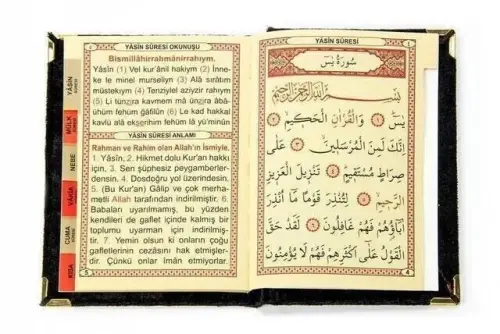 YÂSİN SÛRESİ OKUNUŞU
Bismillâhirrahmânirrahıym.
Yâsîn (1) Vel kur'ânil hakiym (2) İnne-
ke le minel murseliyn (3) Alâ sırâtım
müstekıym (4) Tenziylel aziyzir rahıym
(5) Li tünzira kavmem mâ ünzira âbâ-
ühüm fehum ğâfilûn (6) Le kad hakkal
kavlü alâ ekserihim fehüm lâ yü'minûn
YÂSİN SÛRESİ ANLAMI
Rahman ve Rahim olan Allah'ın İsmiyle.
1. Yâsîn, 2. Hikmet dolu Kur'an hakkı
için. 3. Sen şüphesiz peygamberler-
densin. 4. Dosdoğru yol üzerindesin.
5. (Bu Kur'an) Gâlip ve çok merha-
metli Allah tarafından indirilmiştir. 6.
Babaları uyarılmamış, bu yüzden
kendileri de gaflet içinde kalmış bir
toplumu uyarman için indirilmiş-
tir. 7. Yemin olsun ki onların çoğu
gafletlerinin cezasını hak etmişler-
dir. Çünkü onlar îman etmiyorlar.
5
YÂSİN
MÜLK
NEBE
VÂKIA
CUMA
KISA
YÂSİN SÛRESİ
سُورَةُ يٰسٓ
بِسْمِ اللّٰهِ الرَّحْمٰنِ الرَّحِيمِ
يٰسٓ ﴿١﴾ وَالْقُرْاٰنِ الْحَكِيمِ ﴿٢﴾
اِنَّكَ لَمِنَ الْمُرْسَلِينَ ﴿٣﴾ عَلٰى
صِرَاطٍ مُسْتَقِيمٍ ﴿٤﴾ تَنْزِيلَ الْعَزِيزِ
الرَّحِيمِ ﴿٥﴾ لِتُنْذِرَ قَوْمًا مَٓا اُنْذِرَ
اٰبَٓاؤُ۬هُمْ فَهُمْ غَافِلُونَ ﴿٦﴾ لَقَدْ حَقَّ
الْقَوْلُ عَلٰٓى اَكْثَرِهِمْ فَهُمْ لَا يُؤْمِنُونَ
4